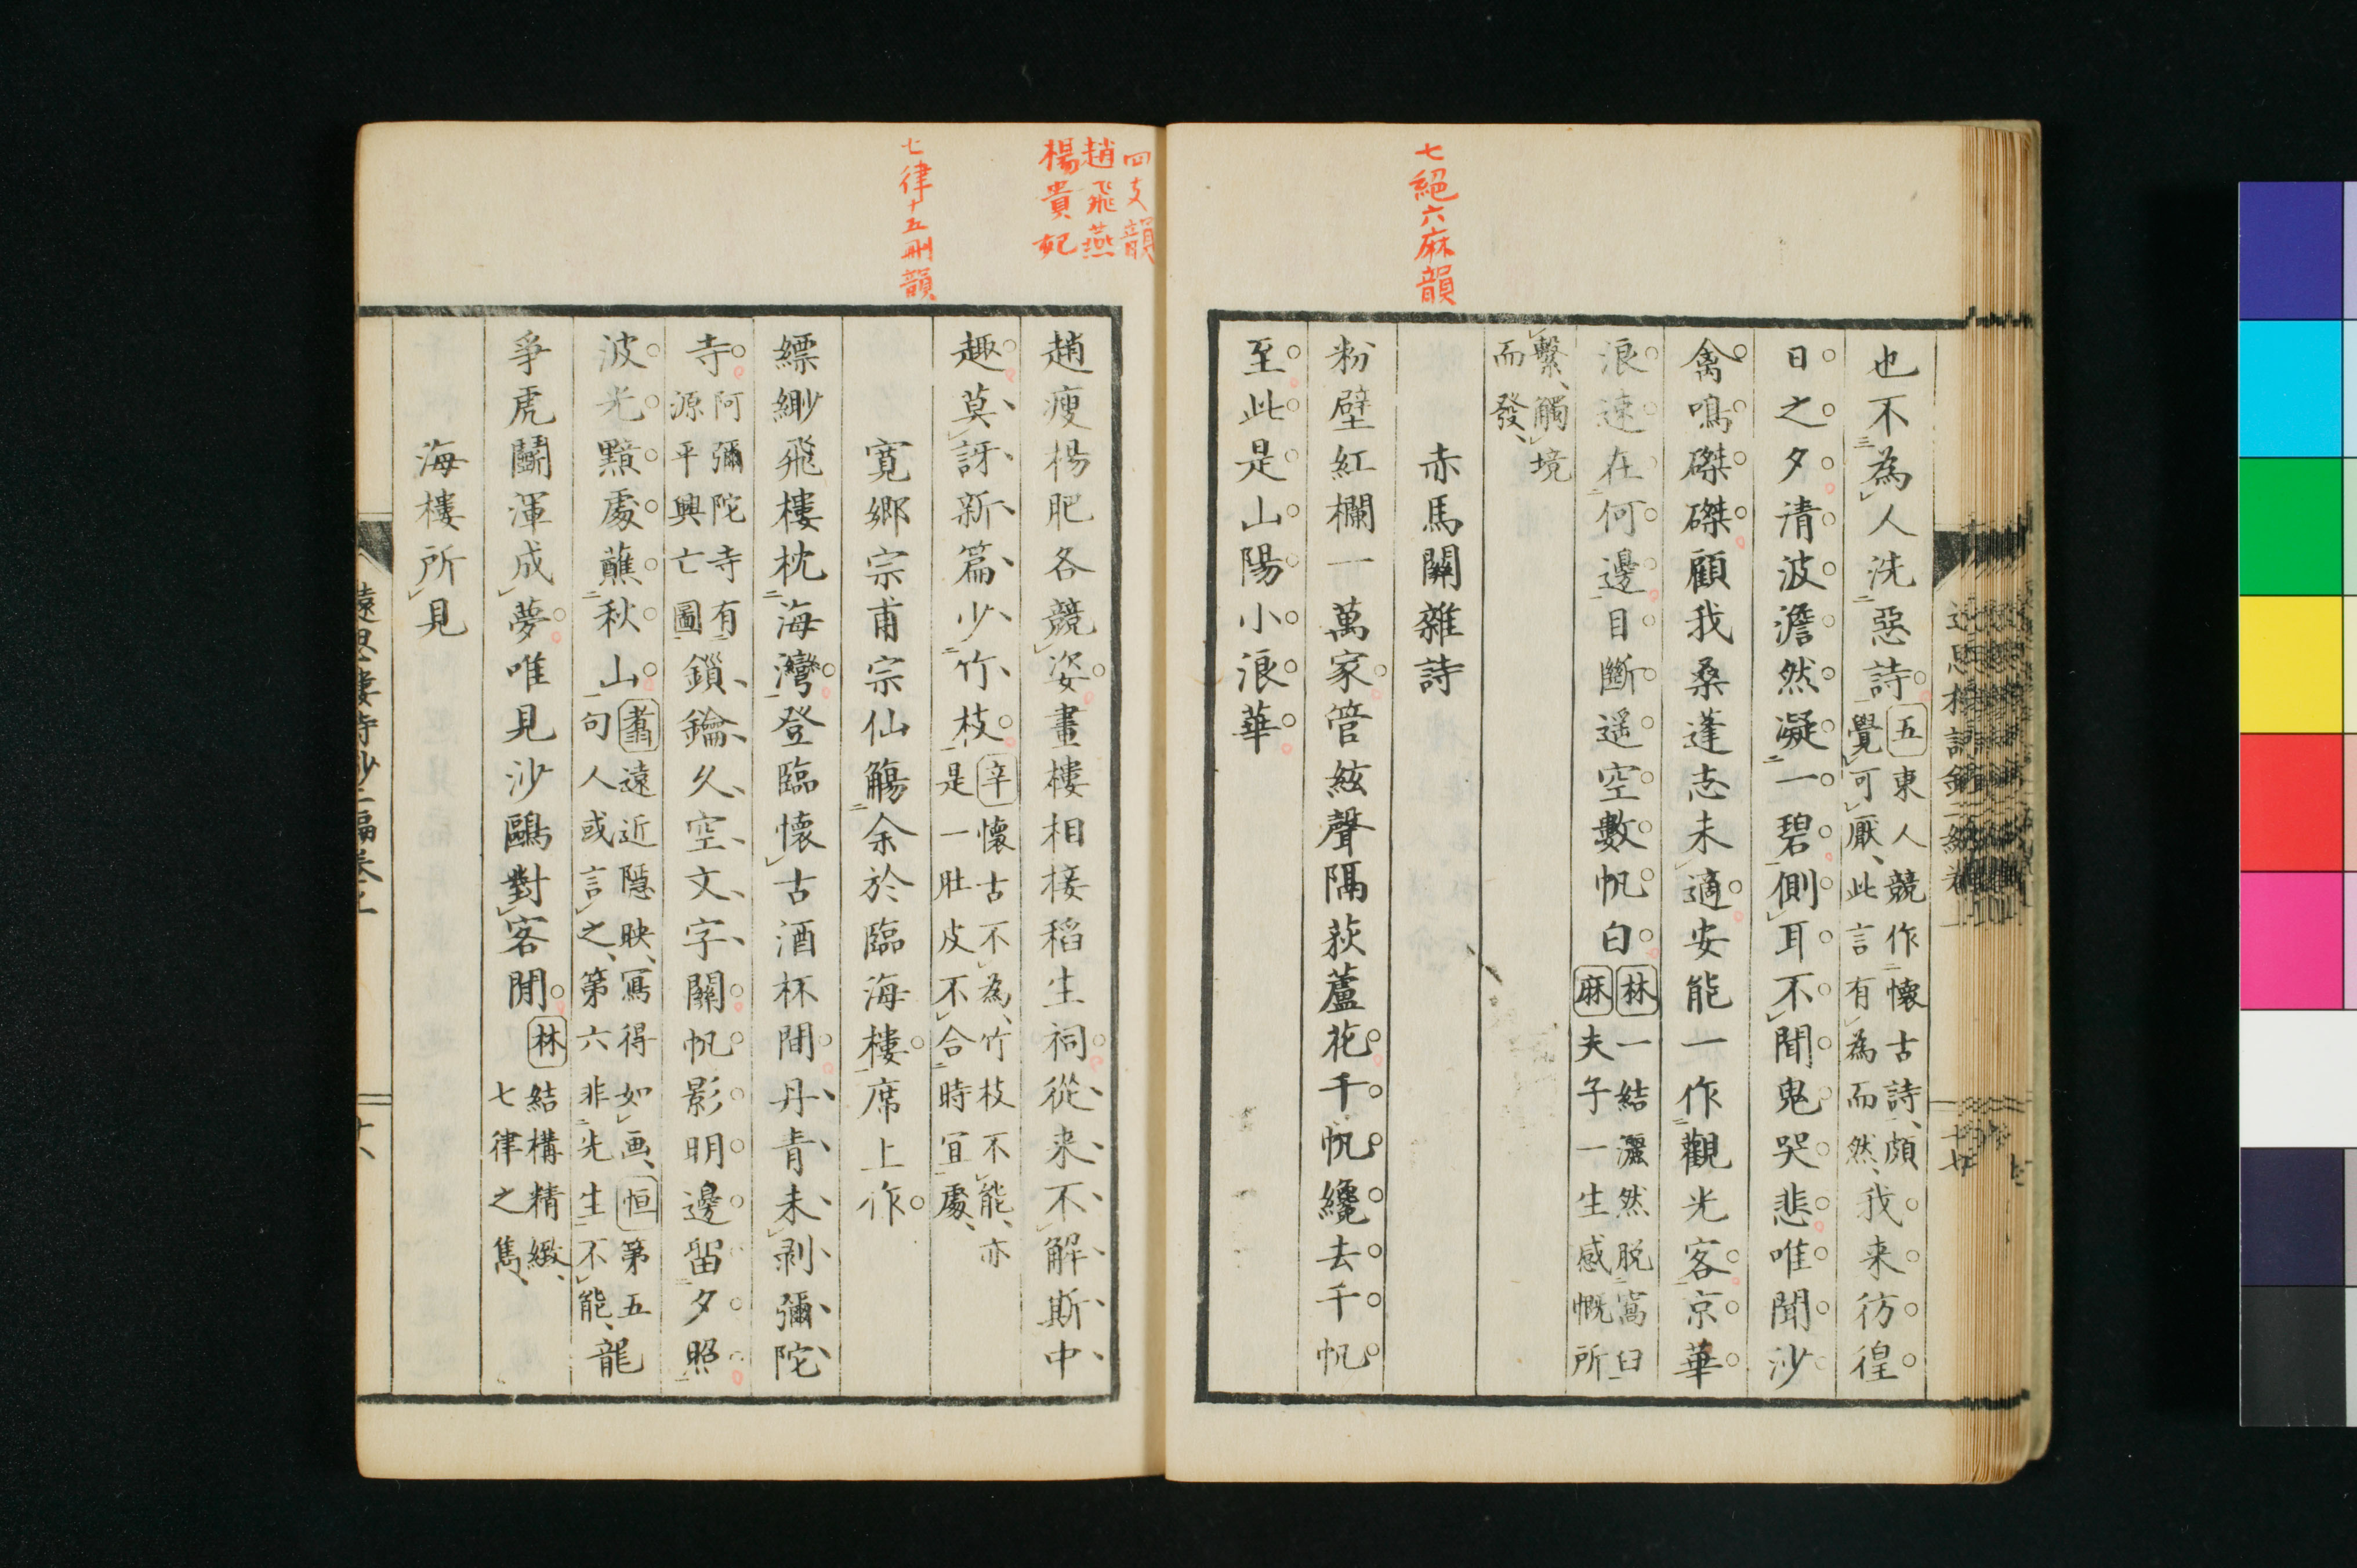 七絕六麻韻
也不為人洗惡詩五東人競作懷古詩頗
覺可厭此言有為而然我来彷徨
日之夕清波澹然凝一碧側耳不聞鬼哭悲唯聞沙
禽鳴磔磔顧我桑蓬志未適安能一作觀光客京華
浪遠在何邊目斷遥空數帆白林一結灑然脱窩臼
麻夫子一生感慨所
繫觸境
而發
赤馬關雜詩
粉壁紅欄一萬家管絃聲隔荻蘆花千帆纔去千帆
至此是山陽小浪華
四支韻
趙飛燕
楊貴妃
七律十五刪韻
趙瘦楊肥各競姿畫樓相接稻生祠從来不解斯中
趣莫訝新篇少竹枝辛懷古不為竹枝不能亦
是一肚皮不合時宜處
寛郷宗甫宗仙觴余於臨海樓席上作
縹緲飛樓枕海灣登臨懷古酒杯間丹青未剥彌陀
寺阿彌陀寺有
源平興亡圖鎖鑰久空文字關帆影明邊留夕照
波光黯處蘸秋山翥遠近隱映寫得如画恒第五
句人或言之第六非先生不能龍
爭虎鬪渾成夢唯見沙鷗對客閒林結構精緻
七律之雋
海樓所見